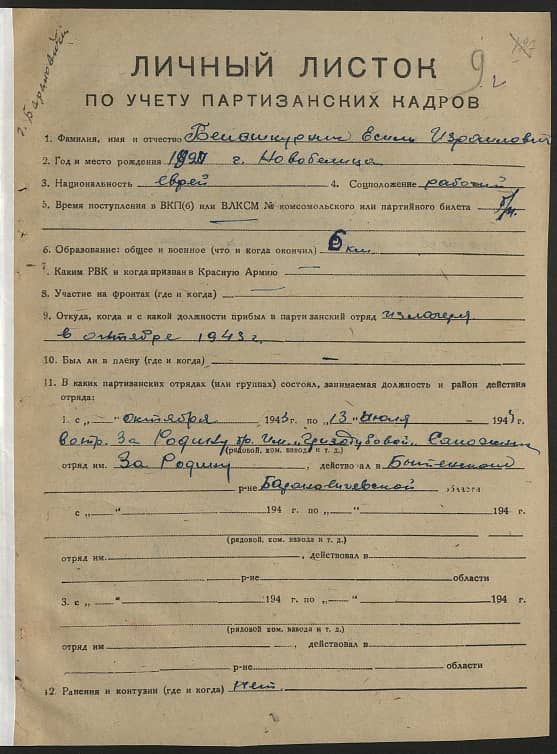 г. Барановичи
9
ЛИЧНЫЙ ЛИСТОК
ПО УЧЕТУ ПАРТИЗАНСКИХ КАДРОВ
1. Фамилия, имя и отчество Израилович
2. Год и место рождения г. Новобелица
3. Национальность еврей 4. Соцположение рабочий
5. Время поступления в ВКП(б) или ВЛКСМ № комсомольского или партийного билета б/п.
6. Образование: общее и военное (что и когда окончил) 6 кл.
7. Каким РВК и когда призван в Красную Армию —
8. Участие на фронтах (где и когда) —
9. Откуда, когда и с какой должности прибыл в партизанский отряд из лагеря
в октябре 1943 г.
10. Был ли в плену (где и когда) —
11. В каких партизанских отрядах (или группах) состоял, занимаемая должность и район действия
отряда:
1. с „ “ октября 1943 г. по „13“ июля 1944 г.
в отр. За Родину бр. им. „Гризодубовой“
(рядовой, ком. взвода и т. д.)
отряд им. За Родину, действовал в Бытенском
р-не Барановичевской области
с „—“ 194 г. по „—“ 194 г.
(рядовой, ком. взвода и т. д.)
отряд им. , действовал в
р-не области
3. с „—“ 194 г. по „—“ 194 г.
(рядовой, ком. взвода и т. д.)
отряд им. , действовал в
р-не области
12. Ранения и контузии (где и когда) нет.